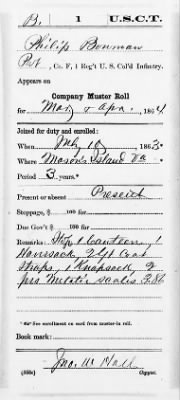 B. | 1 | U.S.C.T.
Philip Bowman
Pvt, Co. F, 1 Reg't U. S. Col'd Infantry.
Appears on
Company Muster Roll
for Mar & Apr., 1864
Joined for duty and enrolled:
When July 10, 1863.
Where Mason's Island Va.
Period 3 years.*
Present or absent Present
Stoppage, $ 100 for
Due Gov't $ 100 for
Remarks: Stop 1 Canteen, 1
Haversack, 2 Gt Coat
Straps, 1 Knapsack, 2
prs Metalic scales 3.86
*See enrollment on card from muster-in roll.
Book mark:
Jno. W. Hall
(858c) Copyist.